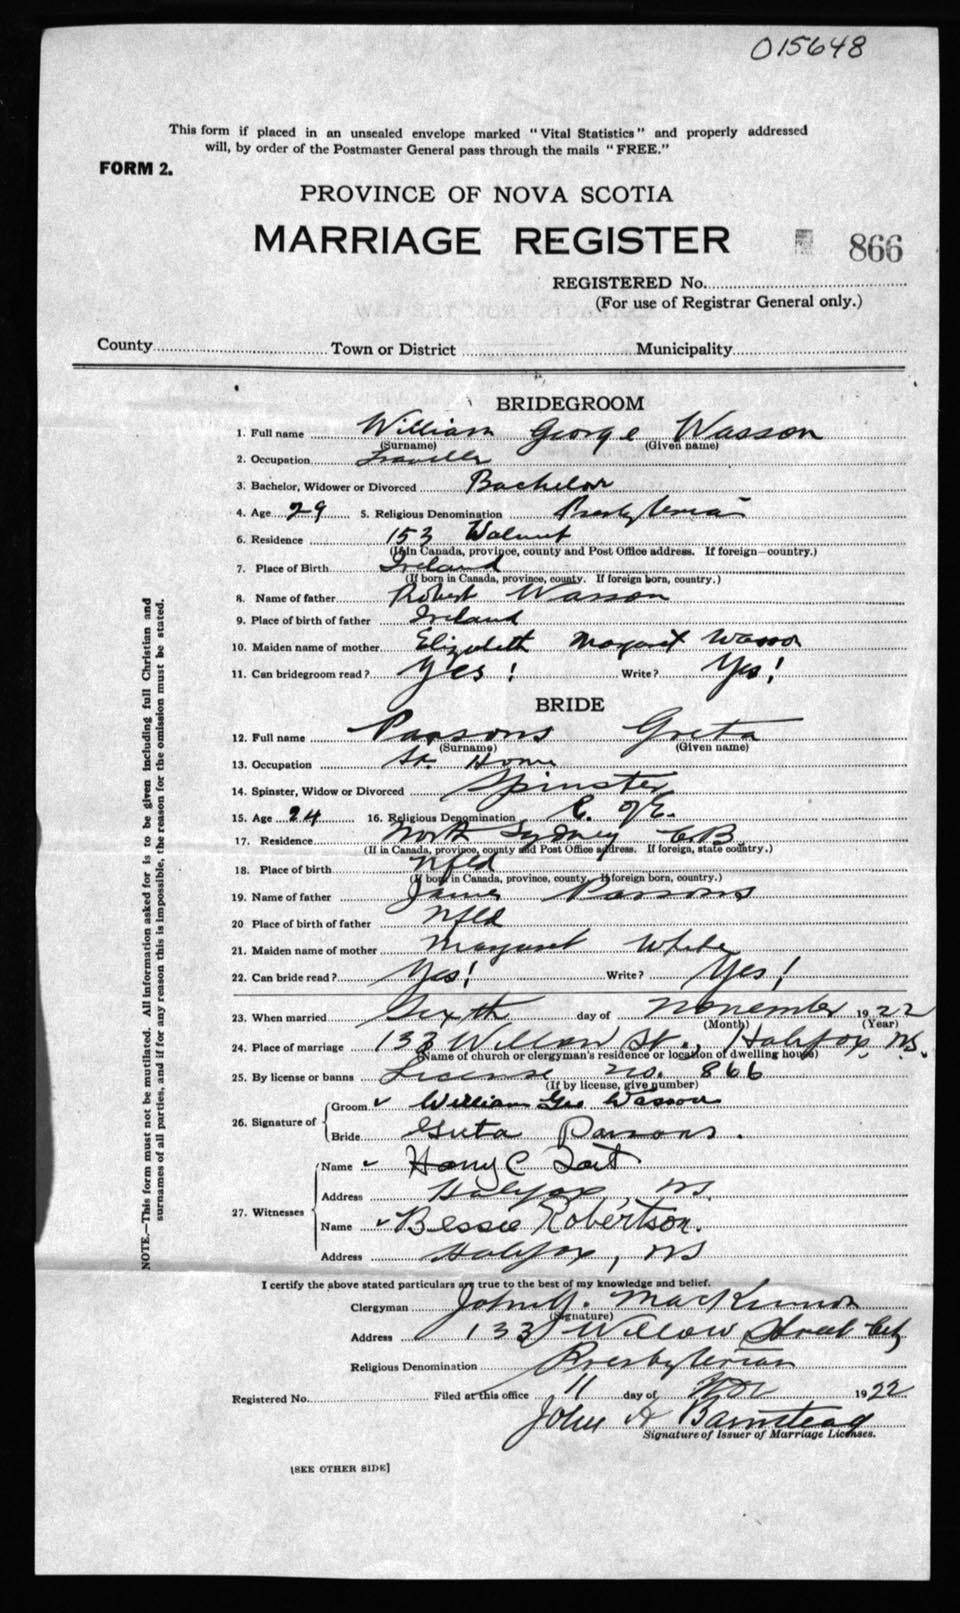 015648
This form if placed in an unsealed envelope marked "Vital Statistics" and properly addressed
will, by order of the Postmaster General pass through the mails "FREE."
FORM 2.
PROVINCE OF NOVA SCOTIA
MARRIAGE REGISTER 866
REGISTERED No.
(For use of Registrar General only.)
County Town or District Municipality
BRIDEGROOM
1. Full name William George Wasson
(Surname) (Given name)
2. Occupation Traveller
3. Bachelor, Widower or Divorced Bachelor
4. Age 29 5. Religious Denomination Presbyterian
6. Residence 153 Walnut
(If in Canada, province, county and Post Office address. If foreign—country.)
7. Place of Birth Ireland
(If born in Canada, province, county. If foreign born, country.)
8. Name of father Robert Wasson
9. Place of birth of father Ireland
10. Maiden name of mother Elizabeth Margaret Wasson
11. Can bridegroom read? Yes! Write? Yes!
BRIDE
12. Full name Parsons Greta
(Surname) (Given name)
13. Occupation At Home
14. Spinster, Widow or Divorced Spinster
15. Age 24 16. Religious Denomination C. of E.
17. Residence North Sydney C.B.
(If in Canada, province, county and Post Office address. If foreign, state country.)
18. Place of birth Nfld
(If born in Canada, province, county. If foreign born, country.)
19. Name of father James Parsons
20 Place of birth of father Nfld
21. Maiden name of mother Margaret White
22. Can bride read? Yes! Write? Yes!
23. When married Sixth day of November 1922
(Month) (Year)
24. Place of marriage 133 Willow St., Halifax, N.S.
(Name of church or clergyman's residence or location of dwelling house)
25. By license or banns License no. 866
(If by license, give number)
26. Signature of Groom William Geo Wasson
Bride Greta Parsons.
27. Witnesses Name Harry C
Address Halifax, N.S.
Name Bessie Robertson.
Address Halifax, N.S.
I certify the above stated particulars are true to the best of my knowledge and belief.
Clergyman John MacKinnon
(Signature)
Address 133 Willow Street City
Religious Denomination Presbyterian
Registered No. Filed at this office 11 day of Nov 1922
John A Barnstead
Signature of Issuer of Marriage Licenses.
[SEE OTHER SIDE]
NOTE.—This form must not be mutilated. All information asked for is to be given including full Christian and
surnames of all parties, and if for any reason this is impossible, the reason for the omission must be stated.